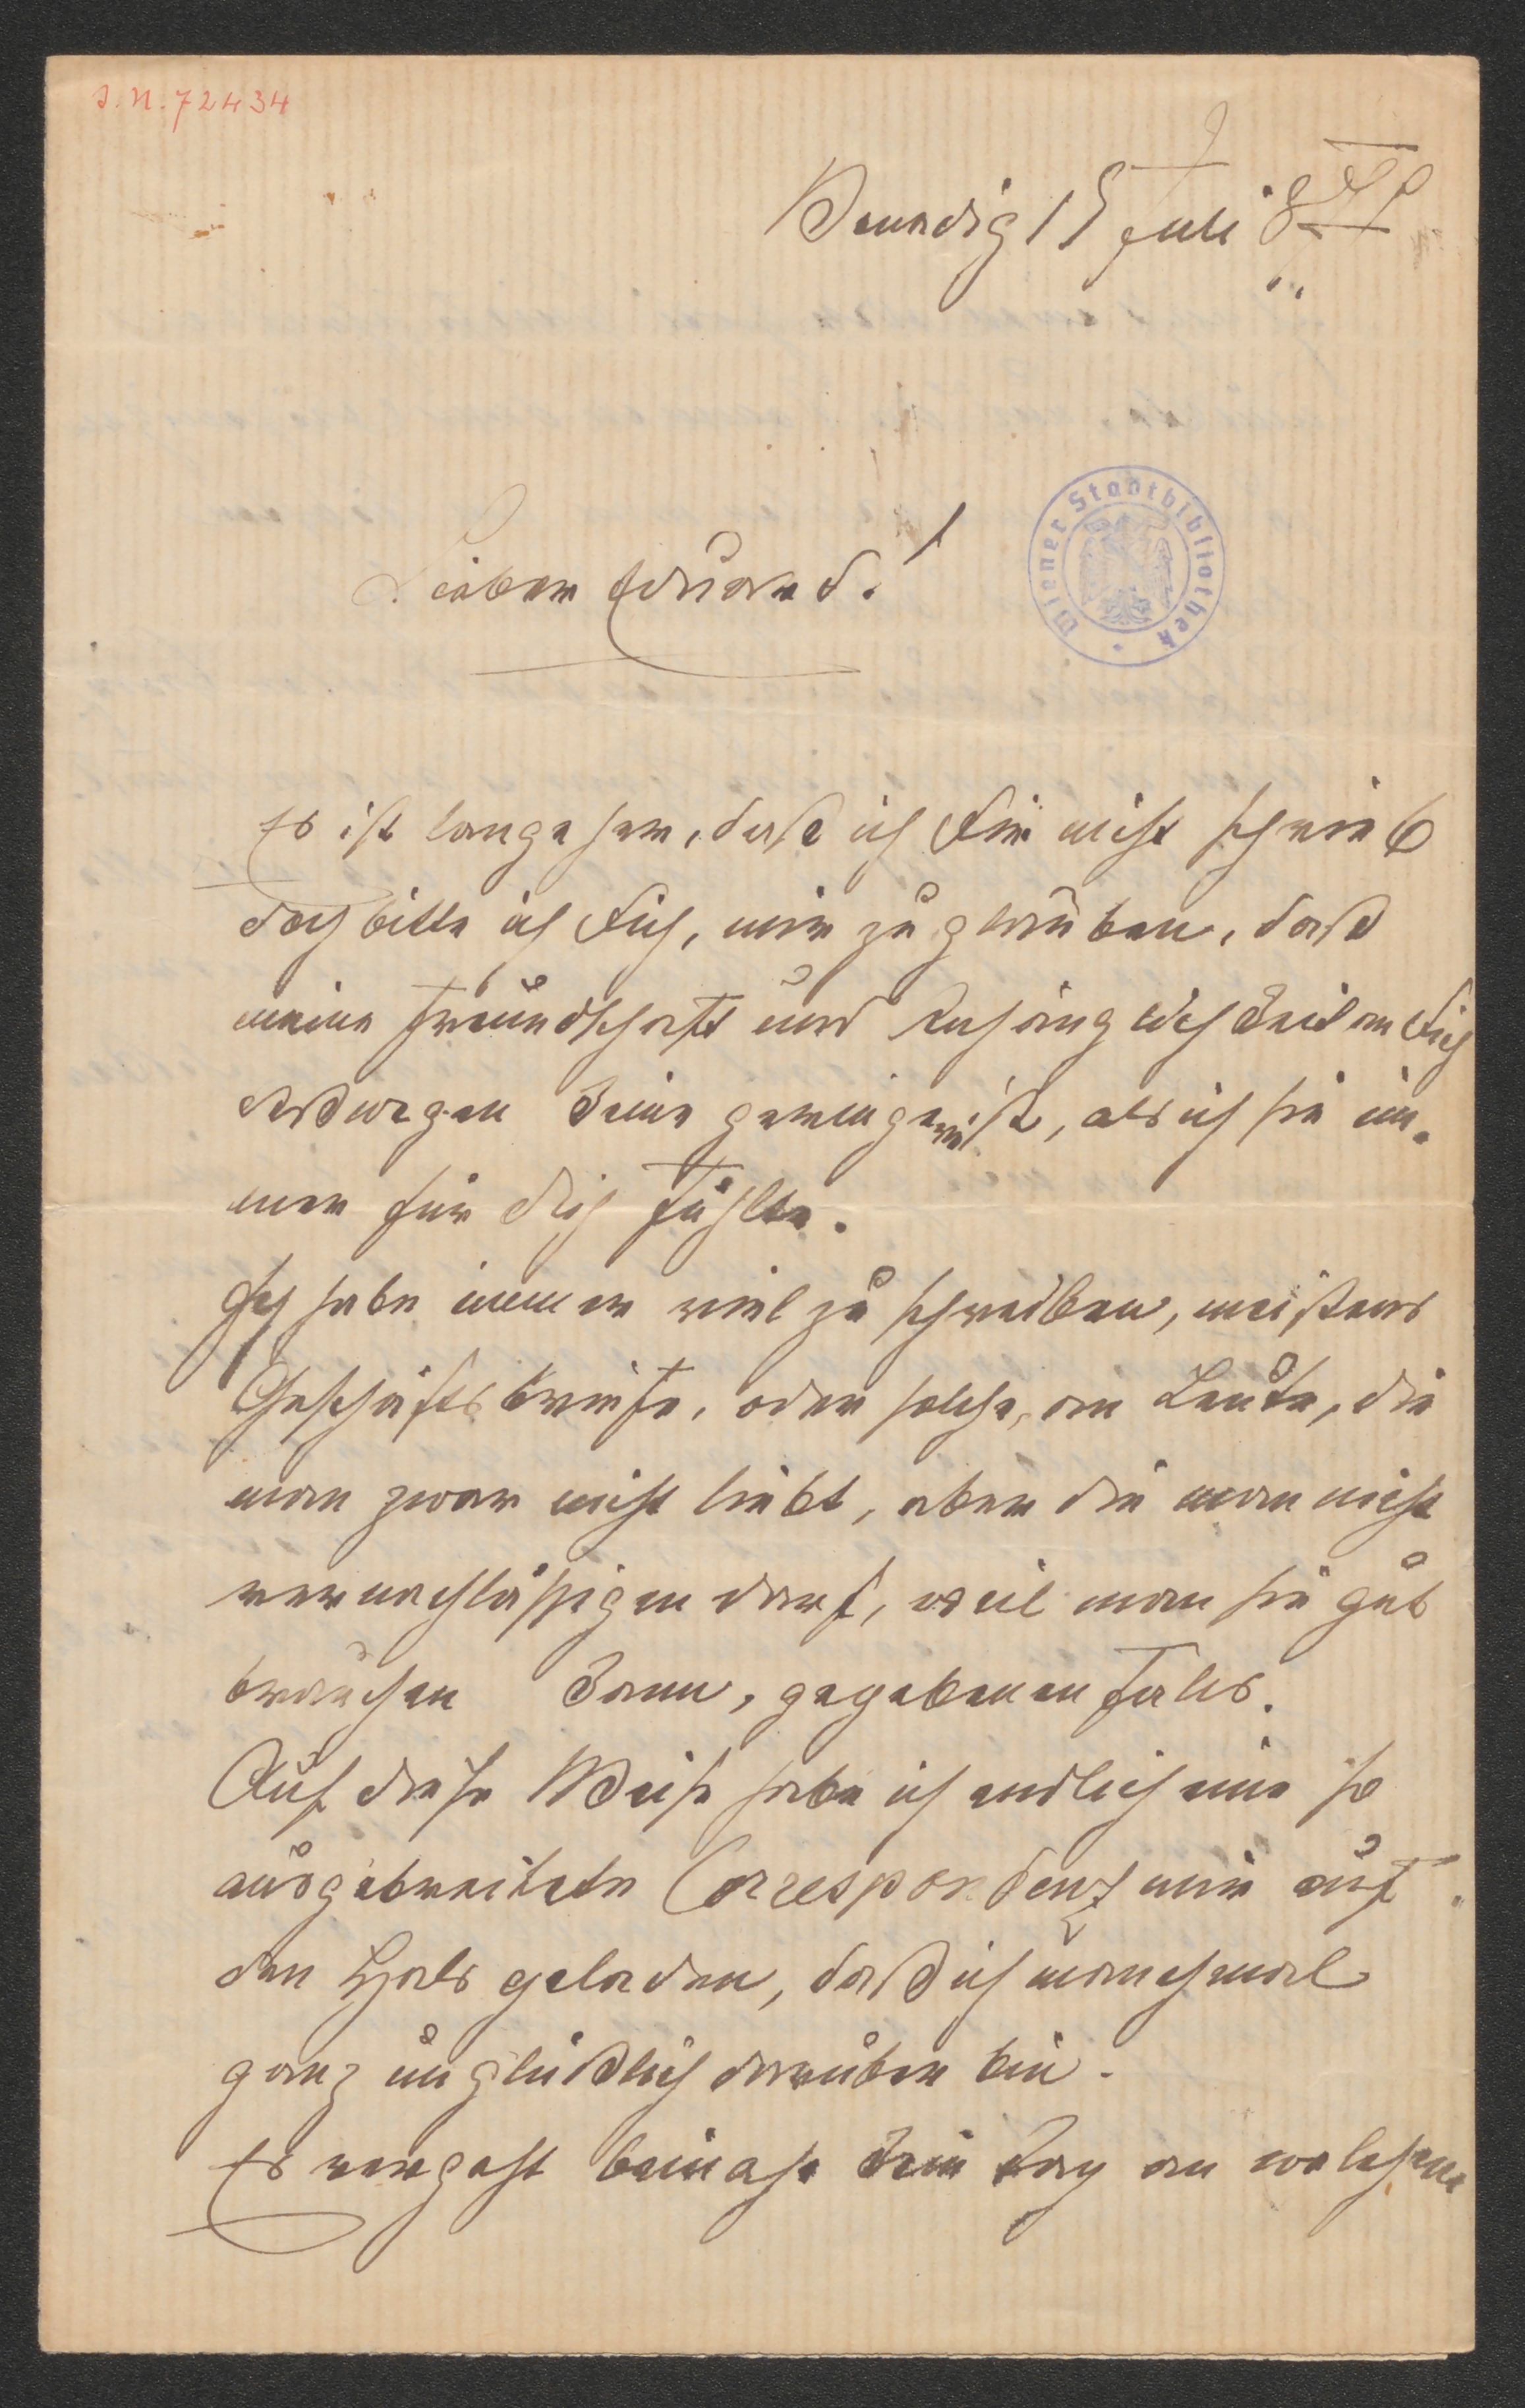 I.N. 72434
Venedig 15 Juli 8
Wiener Stadtbibliothek
Lieber Eduard!
Es ist lange her, daß ich Dir nicht schrieb
doch bitte ich Dich, mir zu glauben, daß
meine Freundschaft und Anhänglichkeit an Dich
deßwegen keine geringere ist, als ich sie im-
mer für dich fühlte.
Ich habe immer viel zu schreiben, meistens
Geschäftsbriefe, oder solche, an Leute, die
man zwar nicht liebt, aber die man nicht
vernachlässigen darf, weil man sie gut
brauchen kann, gegebenen Falls.
Auf diese Weise habe ich endlich eine so
ausgebreitete Correspondenz mir auf
den Hals geladen, daß ich manchmal
ganz unglücklich darüber bin.
Es vergeht beinahe kein Tag an welchem